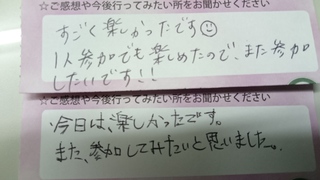 ☆ご感想や今後行ってみたい所をお聞かせください
すごく楽しかったです☺
1人参加でも楽しめたので、また参加
したいです!!
☆ご感想や今後行ってみたい所をお聞かせください
今日は、楽しかったです。
また、参加してみたいと思いました。